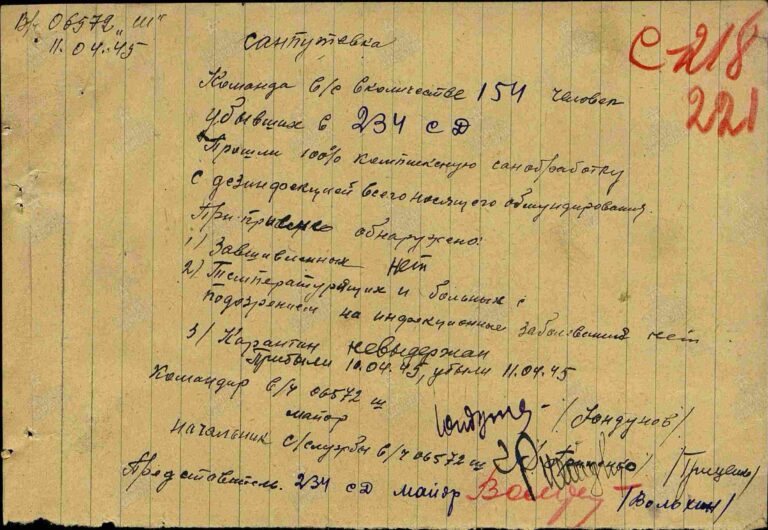 В/ч 06572 „Ш"
11.04.45
С-218
221
санпутевка
Команда в/с в количестве 154 человек
убывших в 234 сд
Прошли 100% комплексную санобработку
с дезинфекцией всего носящего обмундирования.
При приеме обнаружено:
1) Завшивленных нет
2) Температурящих и больных с
подозрением на инфекционные заболевания нет.
3) Карантин невыдержан
Прибыли 10.04.45, убыли 11.04.45
Командир в/ч 06572 ш
майор /Юндунов/
Начальник с/службы в/ч 06572 ш /Гриценко/
Представитель 234 сд майор /Волохин/